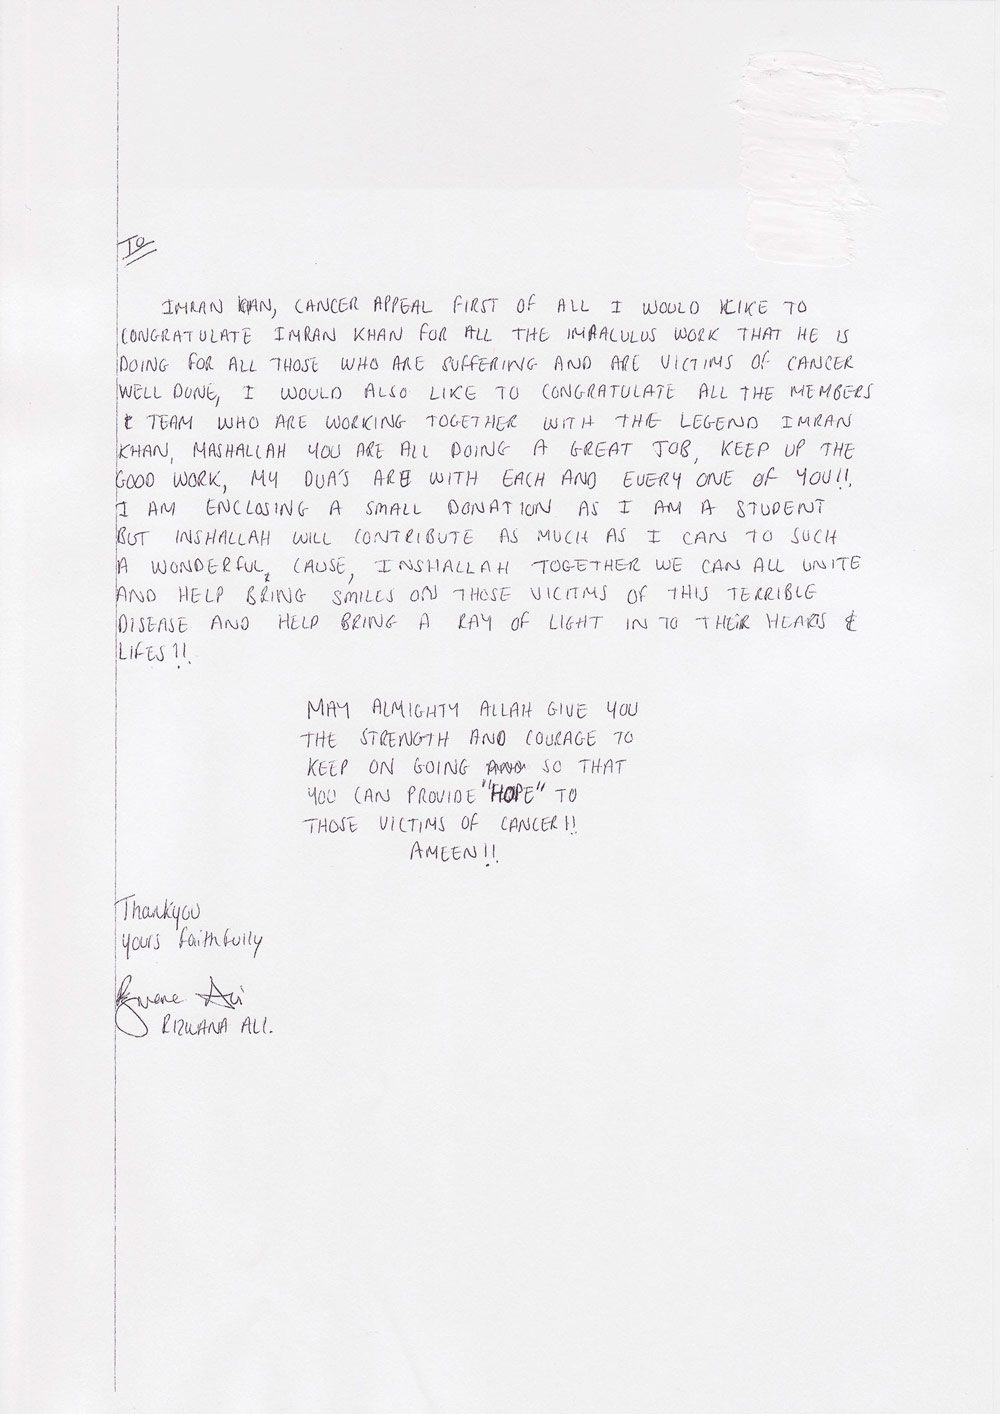 TO
IMRAN KHAN, CANCER APPEAL FIRST OF ALL I WOULD LIKE TO
CONGRATULATE IMRAN KHAN FOR ALL THE IMRACULUS WORK THAT HE IS
DOING FOR ALL THOSE WHO ARE SUFFERING AND ARE VICTIMS OF CANCER
WELL DONE, I WOULD ALSO LIKE TO CONGRATULATE ALL THE MEMBERS
& TEAM WHO ARE WORKING TOGETHER WITH THE LEGEND IMRAN
KHAN, MASHALLAH YOU ARE ALL DOING A GREAT JOB, KEEP UP THE
GOOD WORK, MY DUA'S ARE WITH EACH AND EVERY ONE OF YOU!!
I AM ENCLOSING A SMALL DONATION AS I AM A STUDENT
BUT INSHALLAH WILL CONTRIBUTE AS MUCH AS I CAN TO SUCH
A WONDERFUL, CAUSE, INSHALLAH TOGETHER WE CAN ALL UNITE
AND HELP BRING SMILES ON THOSE VICITMS OF THIS TERRIBLE
DISEASE AND HELP BRING A RAY OF LIGHT IN TO THEIR HEARTS &
LIFES!!
MAY ALMIGHTY ALLAH GIVE YOU
THE STRENGTH AND COURAGE TO
KEEP ON GOING SO THAT
YOU CAN PROVIDE "HOPE" TO
THOSE VICTIMS OF CANCER!!
AMEEN!!
Thankyou
yours faithfully
RIZWANA ALI.